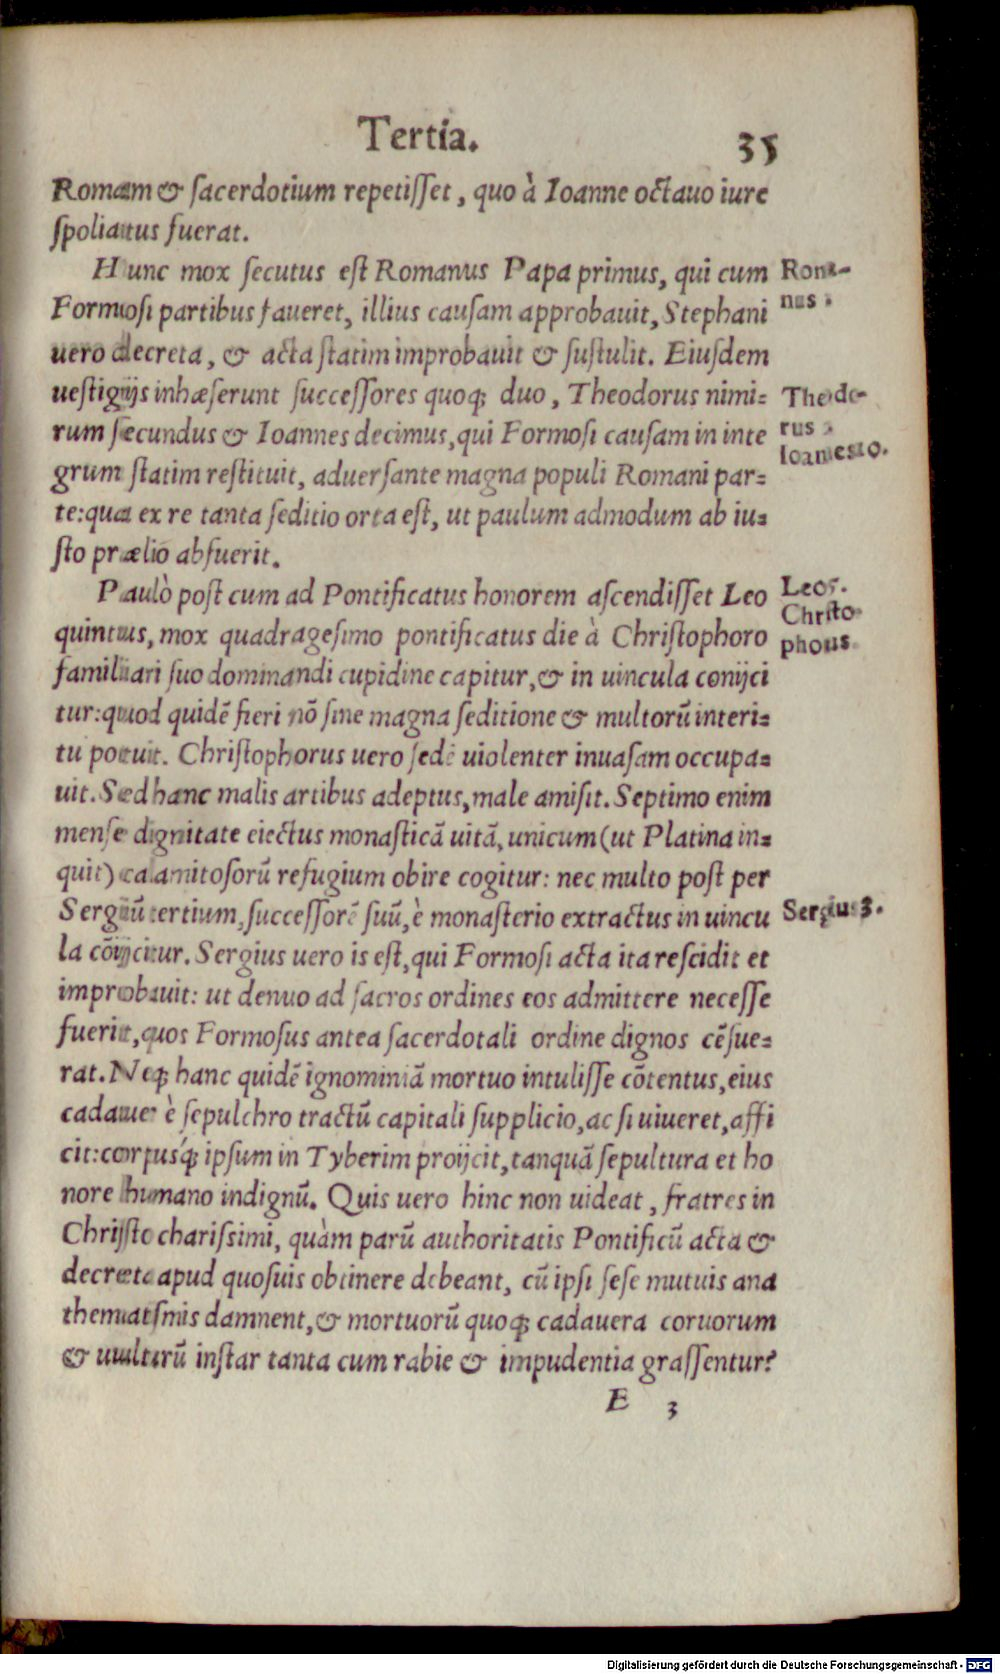 Tertia. 35
Romam & sacerdotium repetisset, quo à Ioanne octauo iure
spoliatus fuerat.
Hunc mox secutus est Romanus Papa primus, qui cum
Roma-
Formosi partibus faueret, illius causam approbauit, Stephani
nus 1.
uero decreta, & acta statim improbauit & sustulit. Eiusdem
uestigijs inhæserunt successores quoq; duo, Theodorus nimi=
Theodo-
rum secundus & Ioannes decimus, qui Formosi causam in inte
rus 2.
grum statim restituit, aduersante magna populi Romani par=
Ioannes 10.
te: qua ex re tanta seditio orta est, ut paulum admodum ab iu=
sto prælio abfuerit.
Paulò post cum ad Pontificatus honorem ascendisset Leo
Leo 5.
quintus, mox quadragesimo pontificatus die à Christophoro
Christo
phorus.
familiari suo dominandi cupidine capitur, & in uincula conijci
tur: quod quidē fieri nō sine magna seditione & multorū interi=
tu potuit. Christophorus uero sedē uiolenter inuasam occupa=
uit. Sed hanc malis artibus adeptus, male amisit. Septimo enim
mense dignitate eiectus monasticā uitā, unicum (ut Platina in=
quit) calamitosorū refugium obire cogitur: nec multo post per
Sergiū tertium, successorē suū, è monasterio extractus in uincu
Sergius 3.
la cōijcitur. Sergius uero is est, qui Formosi acta ita rescidit et
improbauit: ut denuo ad sacros ordines eos admittere necesse
fuerit, quos Formosus antea sacerdotali ordine dignos cēsue=
rat. Neq; hanc quidē ignominiā mortuo intulisse cōtentus, eius
cadauer è sepulchro tractū capitali supplicio, ac si uiueret, affi
cit: corpusq́; ipsum in Tyberim proijcit, tanquā sepultura et ho
nore humano indignū. Quis uero hinc non uideat, fratres in
Christo charissimi, quàm parū authoritatis Pontificū acta &
decreta apud quosuis obtinere debeant, cū ipsi sese mutuis ana
thematismis damnent, & mortuorū quoq; cadauera coruorum
& uulturū instar tanta cum rabie & impudentia grassentur?
E 3
Digitalisierung gefördert durch die Deutsche Forschungsgemeinschaft - DFG